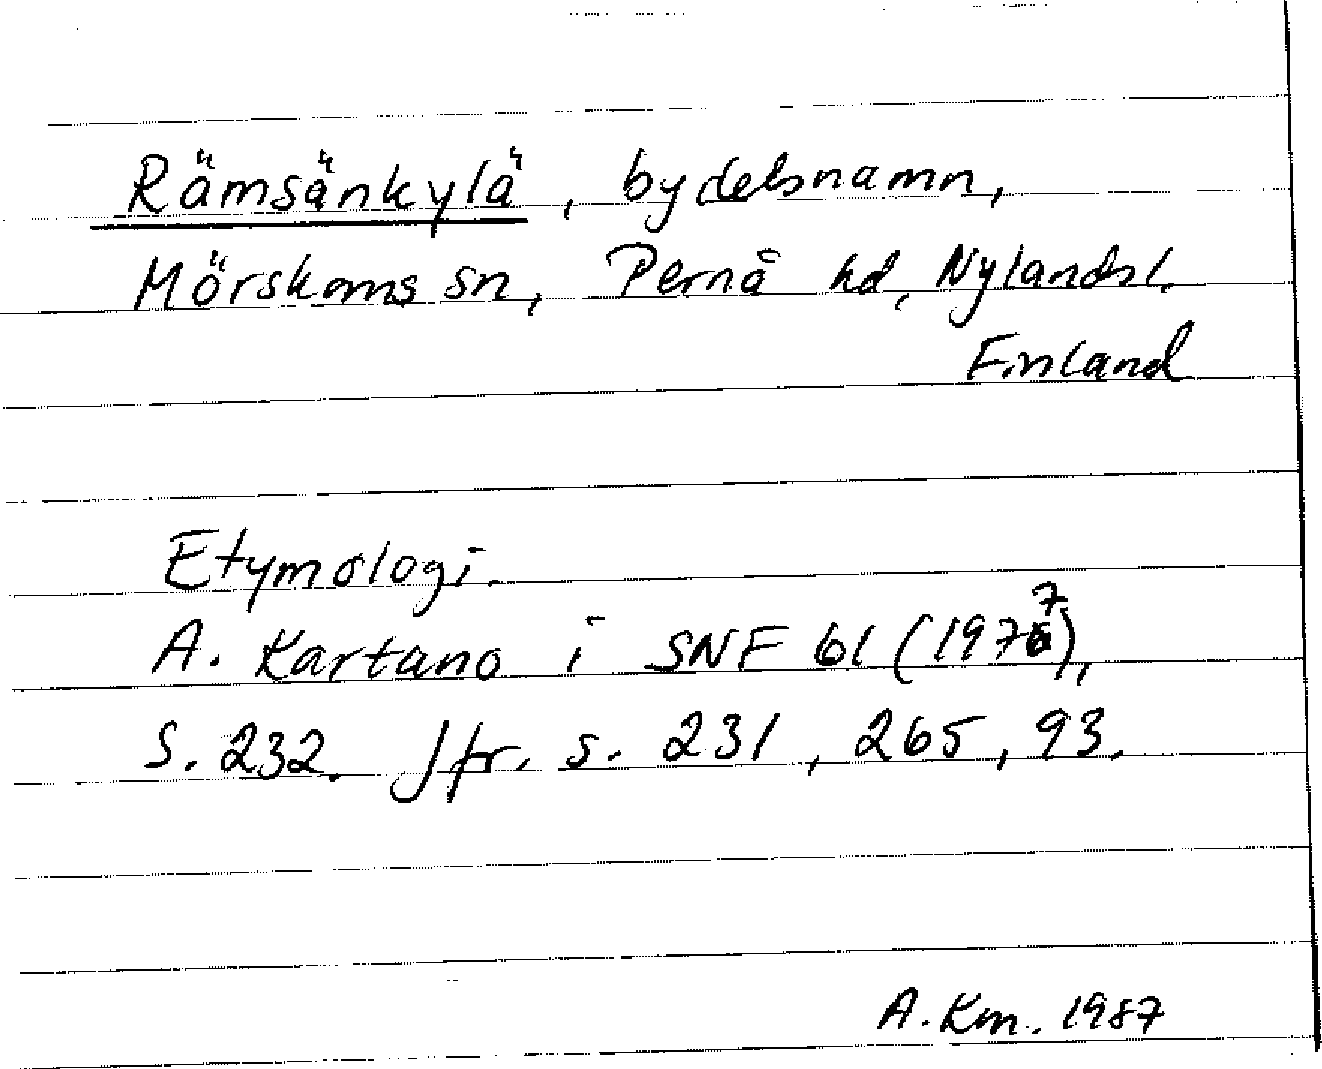 Rämsänkylä, bydelsnamn,
Mörskoms sn, Pernå hd, Nylandsl.
Finland
Etymologi.
A. Kartano i SNF 61 (1977),
S. 232. Jfr. s. 231, 265, 93.
A. Km. 1987